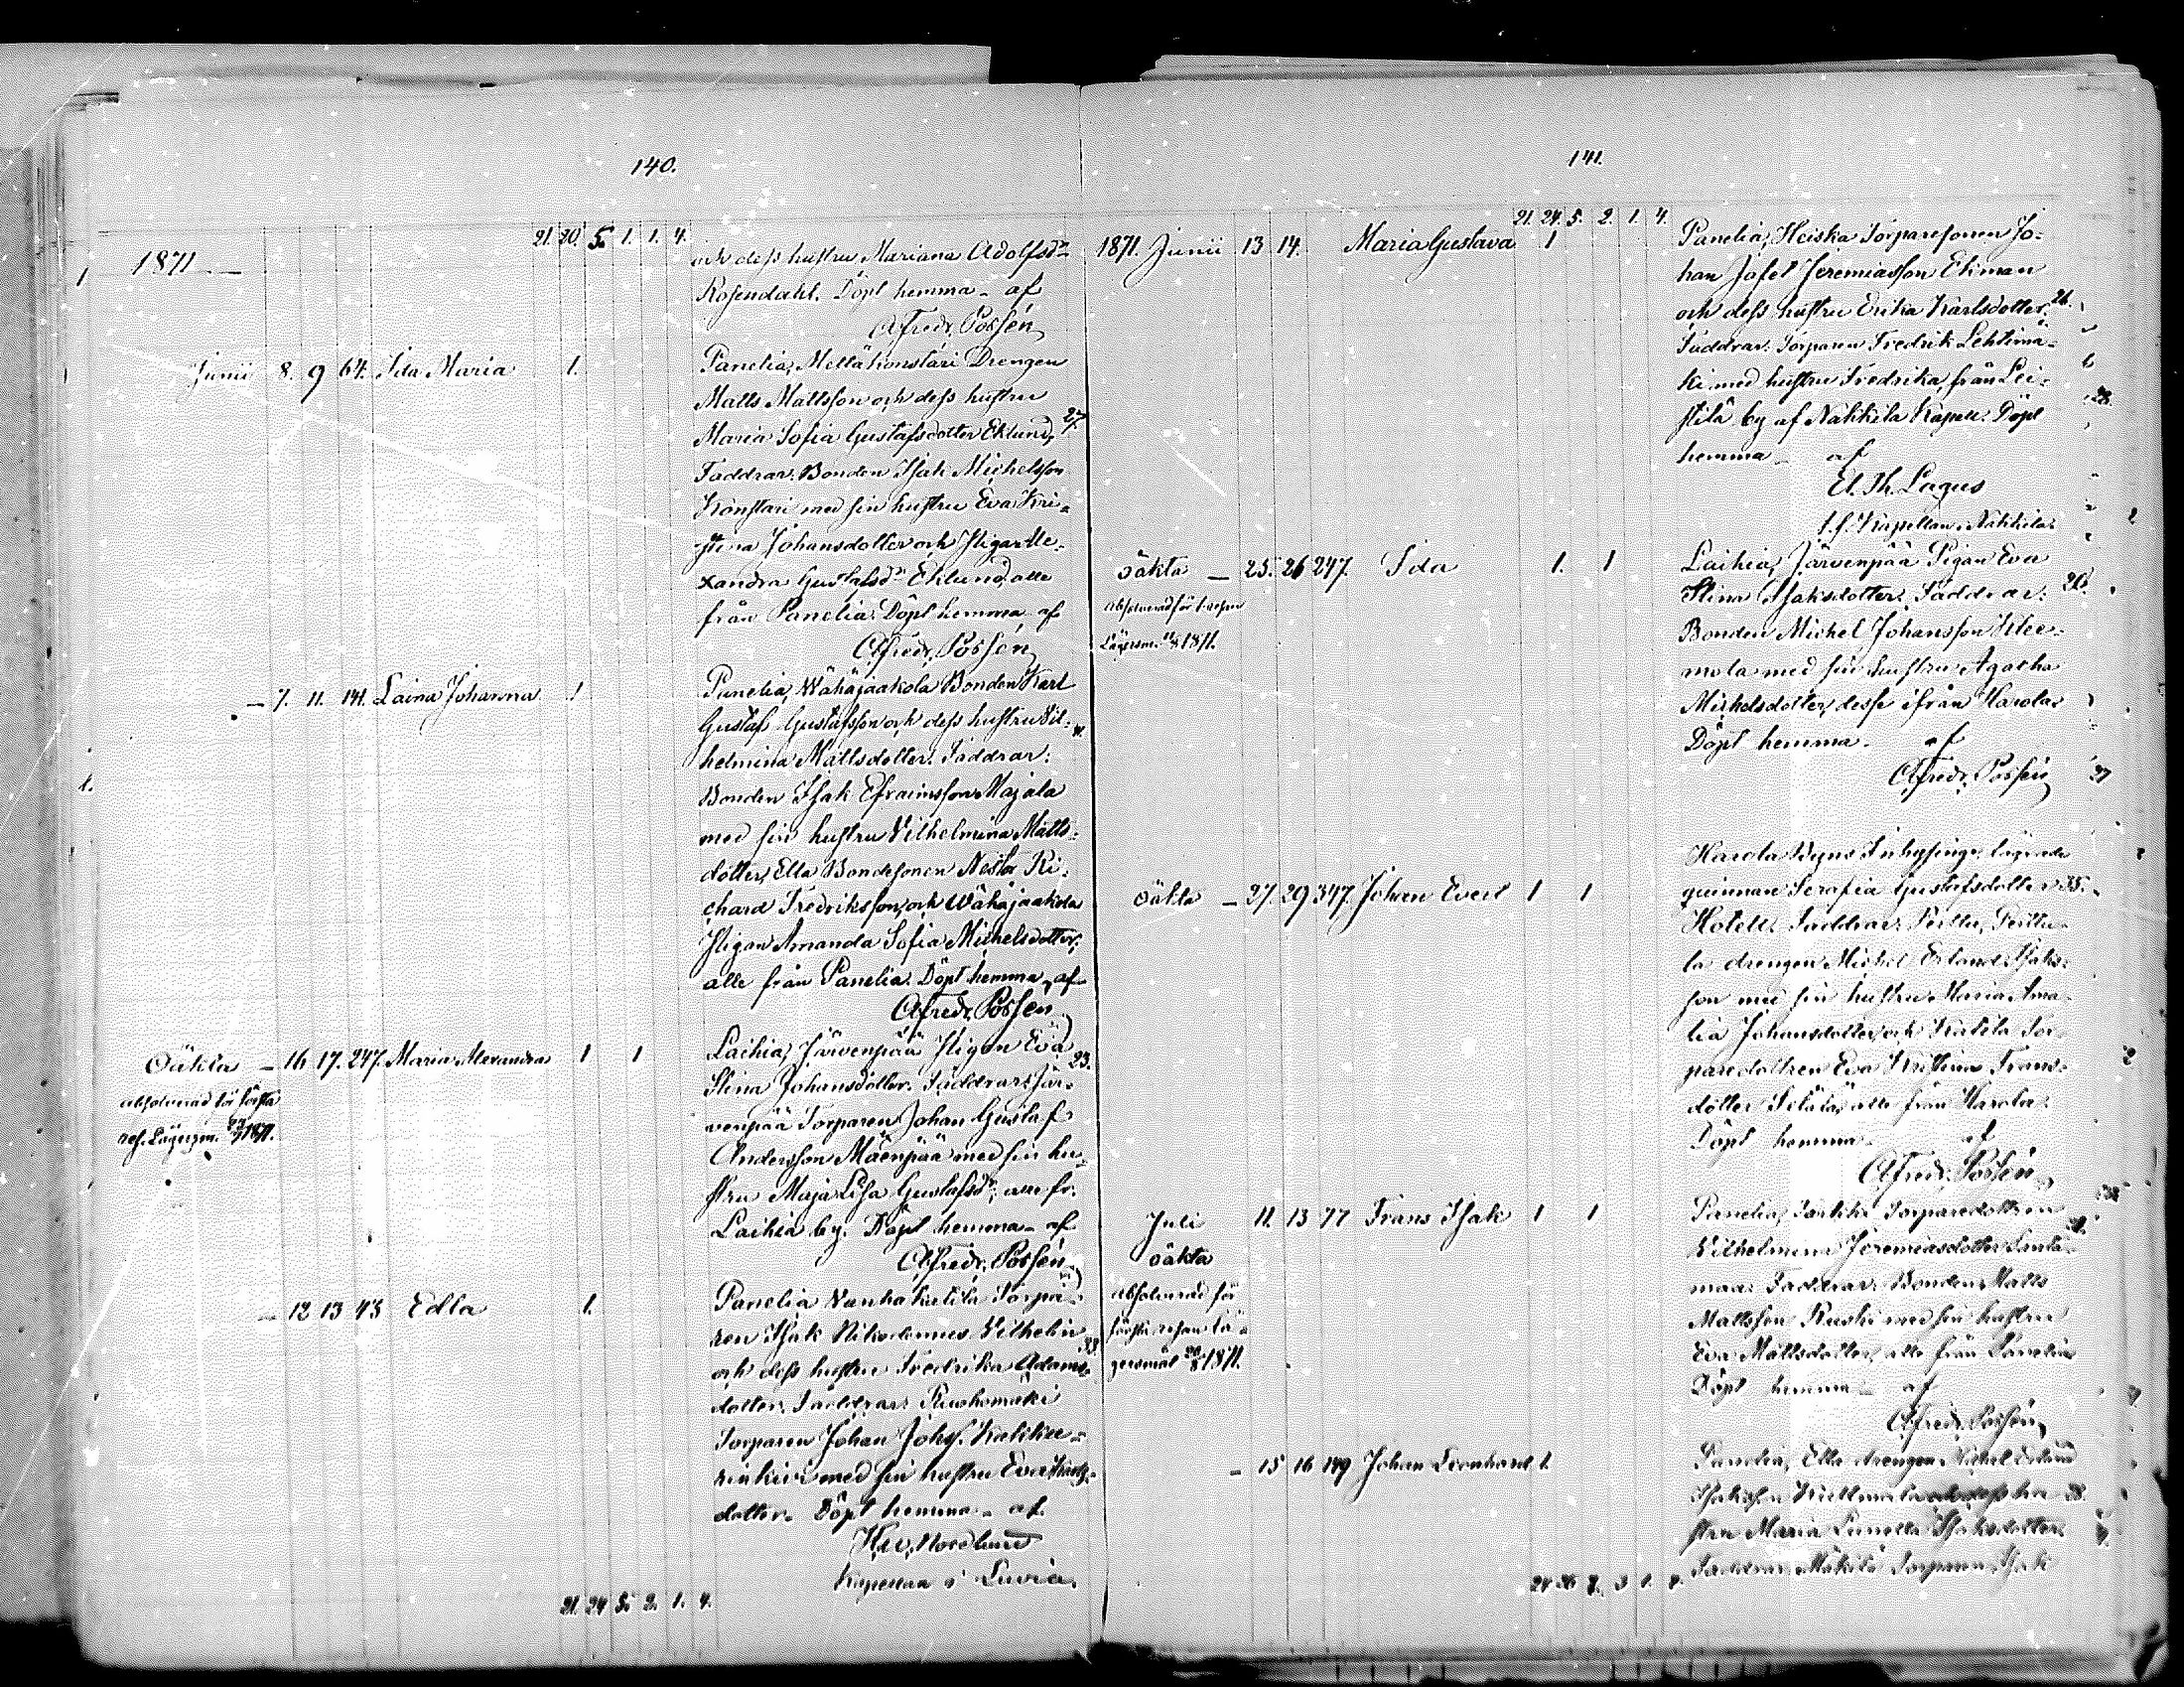 140.
21. 20. 5. 1. 1. 4.
1871
och dess hustru Mariana Adolfsdr
Rosendahl. Döpt hemma af
Alfredr. Possén
Junii 8. 9 64. Ida Maria 1.
Panelia, Mellätkonstari Drengen
Matts Mattsson och dess hustru
Maria Sofia Gustafsdotter Eklund, 27.
Faddrar: Bonden Isak Michelsson
Konstari med sin hustru Eva Kri-
stina Johansdotter och Pigan Ale-
xandra Gustafsdr Eklund, alle
från Panelia. Döpt hemma af
Alfredr. Possén
— 7. 11. 141. Laina Johanna 1
Panelia, Wähäjaakola Bonden Karl
Gustaf Gustafsson och dess hustru Vil-
helmina Mattsdotter. Faddrar:
Bonden Isak Efraimsson Majala
med sin hustru Vilhelmina Matts-
dotter, Ella Bondesonen Nestor Ri-
chard Fredriksson, och Wähäjaakola
Pigan Amanda Sofia Michelsdotter,
alle från Panelia. Döpt hemma, af
Alfredr. Possén
Oäkta — 16 17. 247. Maria Alexandra 1 1
absolverad för första
res. Lägersm. 1871.
Laihia, Järvenpää Pigan Eva 23.
Stina Johansdotter. Faddrar: Jär-
venpää Torparen Johan Gustaf
Andersson Mäenpää med sin hu-
stru Maja Lisa Gustafsdr, alle fr.
Laihia by. Döpt hemma af
Alfredr. Possén
— 12 13 43 Edla 1.
Panelia Vanhakatila Torpa-
ren Isak Nikodemus Vilhelm
och dess hustru Fredrika Adams- 33.
dotter. Faddrar: Ruohomäki
Torparen Johan Johss.
med sin hustru Eva
dotter. Döpt hemma af
Nordlund
Kapellan i Luvia.
21. 24 5. 2. 1. 4.
141.
21. 24. 5. 2. 1. 4.
1871. Junii 13 14. Maria Gustava 1
Panelia, Heiska Torparesonen Jo-
han Jafet Jeremiasson Ekman
och dess hustru Erika Karlsdotter. 26.
Faddrar: Torparen Fredrik Lehtimä-
ki med hustru Fredrika, från Lei-
stilä by af Nakkila Kapell. Döpt
hemma af
El. Th. Lagus
t.f. Kapellan i Nakkila
oäkta — 25. 26 247. Ida 1. 1
absolverad för 1 resan
Lägersm. 1871.
Laihia, Järvenpää Pigan Eva
Stina Isaksdotter. Faddrar: 20.
Bonden Michel Johansson
mola med sin hustru Agatha
Michelsdotter, desse ifrån Harola.
Döpt hemma. af
Alfredr. Possén
oäkta — 27. 29 347. Johan Evert 1 1
Harola Byns Inhysinge
quinnan Serafia Gustafsdotter 35.
Hotell. Faddrar: Perttu, Perttu-
la drengen Michel Erland Isaks-
son med sin hustru Maria Ama-
lia Johansdotter, och Katila Tor-
paredottren Eva Kristina Frans-
dotter alle från Harola.
Döpt hemma af
Alfredr. Possén
Juli 11. 13 77 Frans Isak 1 1
oäkta
absolverad för
första resan lä-
gersmål 1871.
Panelia, Torparedottren
Vilhelmina Jeremiasdotter Santa-
maa. Faddrar: Bonden Matts
Mattsson Ruski med sin hustru
Eva Mattsdotter, alle från Panelia
Döpt hemma af
Alfredr. Possén
— 15 16 149 Johan Leonhard 1.
Panelia, Ella drengen Michel Erland
Isaksson och dess hu- 28.
stru Maria Isaksdotter.
Faddrar: Mäkilä Torparen Isak